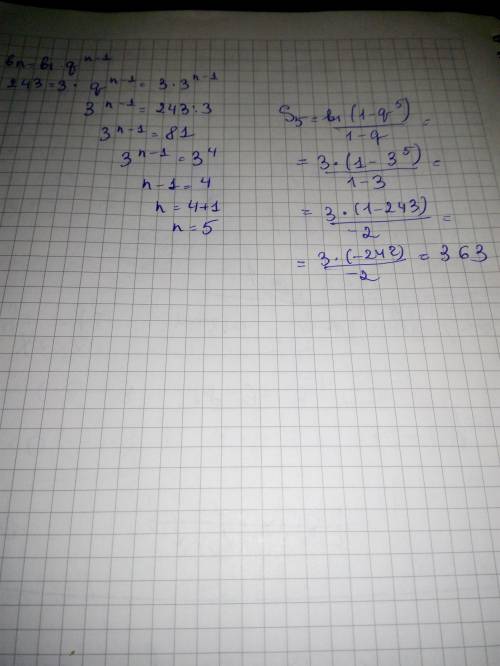 bn = b₁ · q^(n-1)
243 = 3 · q^(n-1) = 3 · 3^(n-1)
3^(n-1) = 243 : 3
3^(n-1) = 81
3^(n-1) = 3^4
n-1 = 4
n = 4+1
n = 5
S₅ = b₁(1-q^5)/(1-q) =
= 3·(1-3^5)/(1-3) =
= 3·(1-243)/(-2) =
= 3·(-242)/(-2) = 363